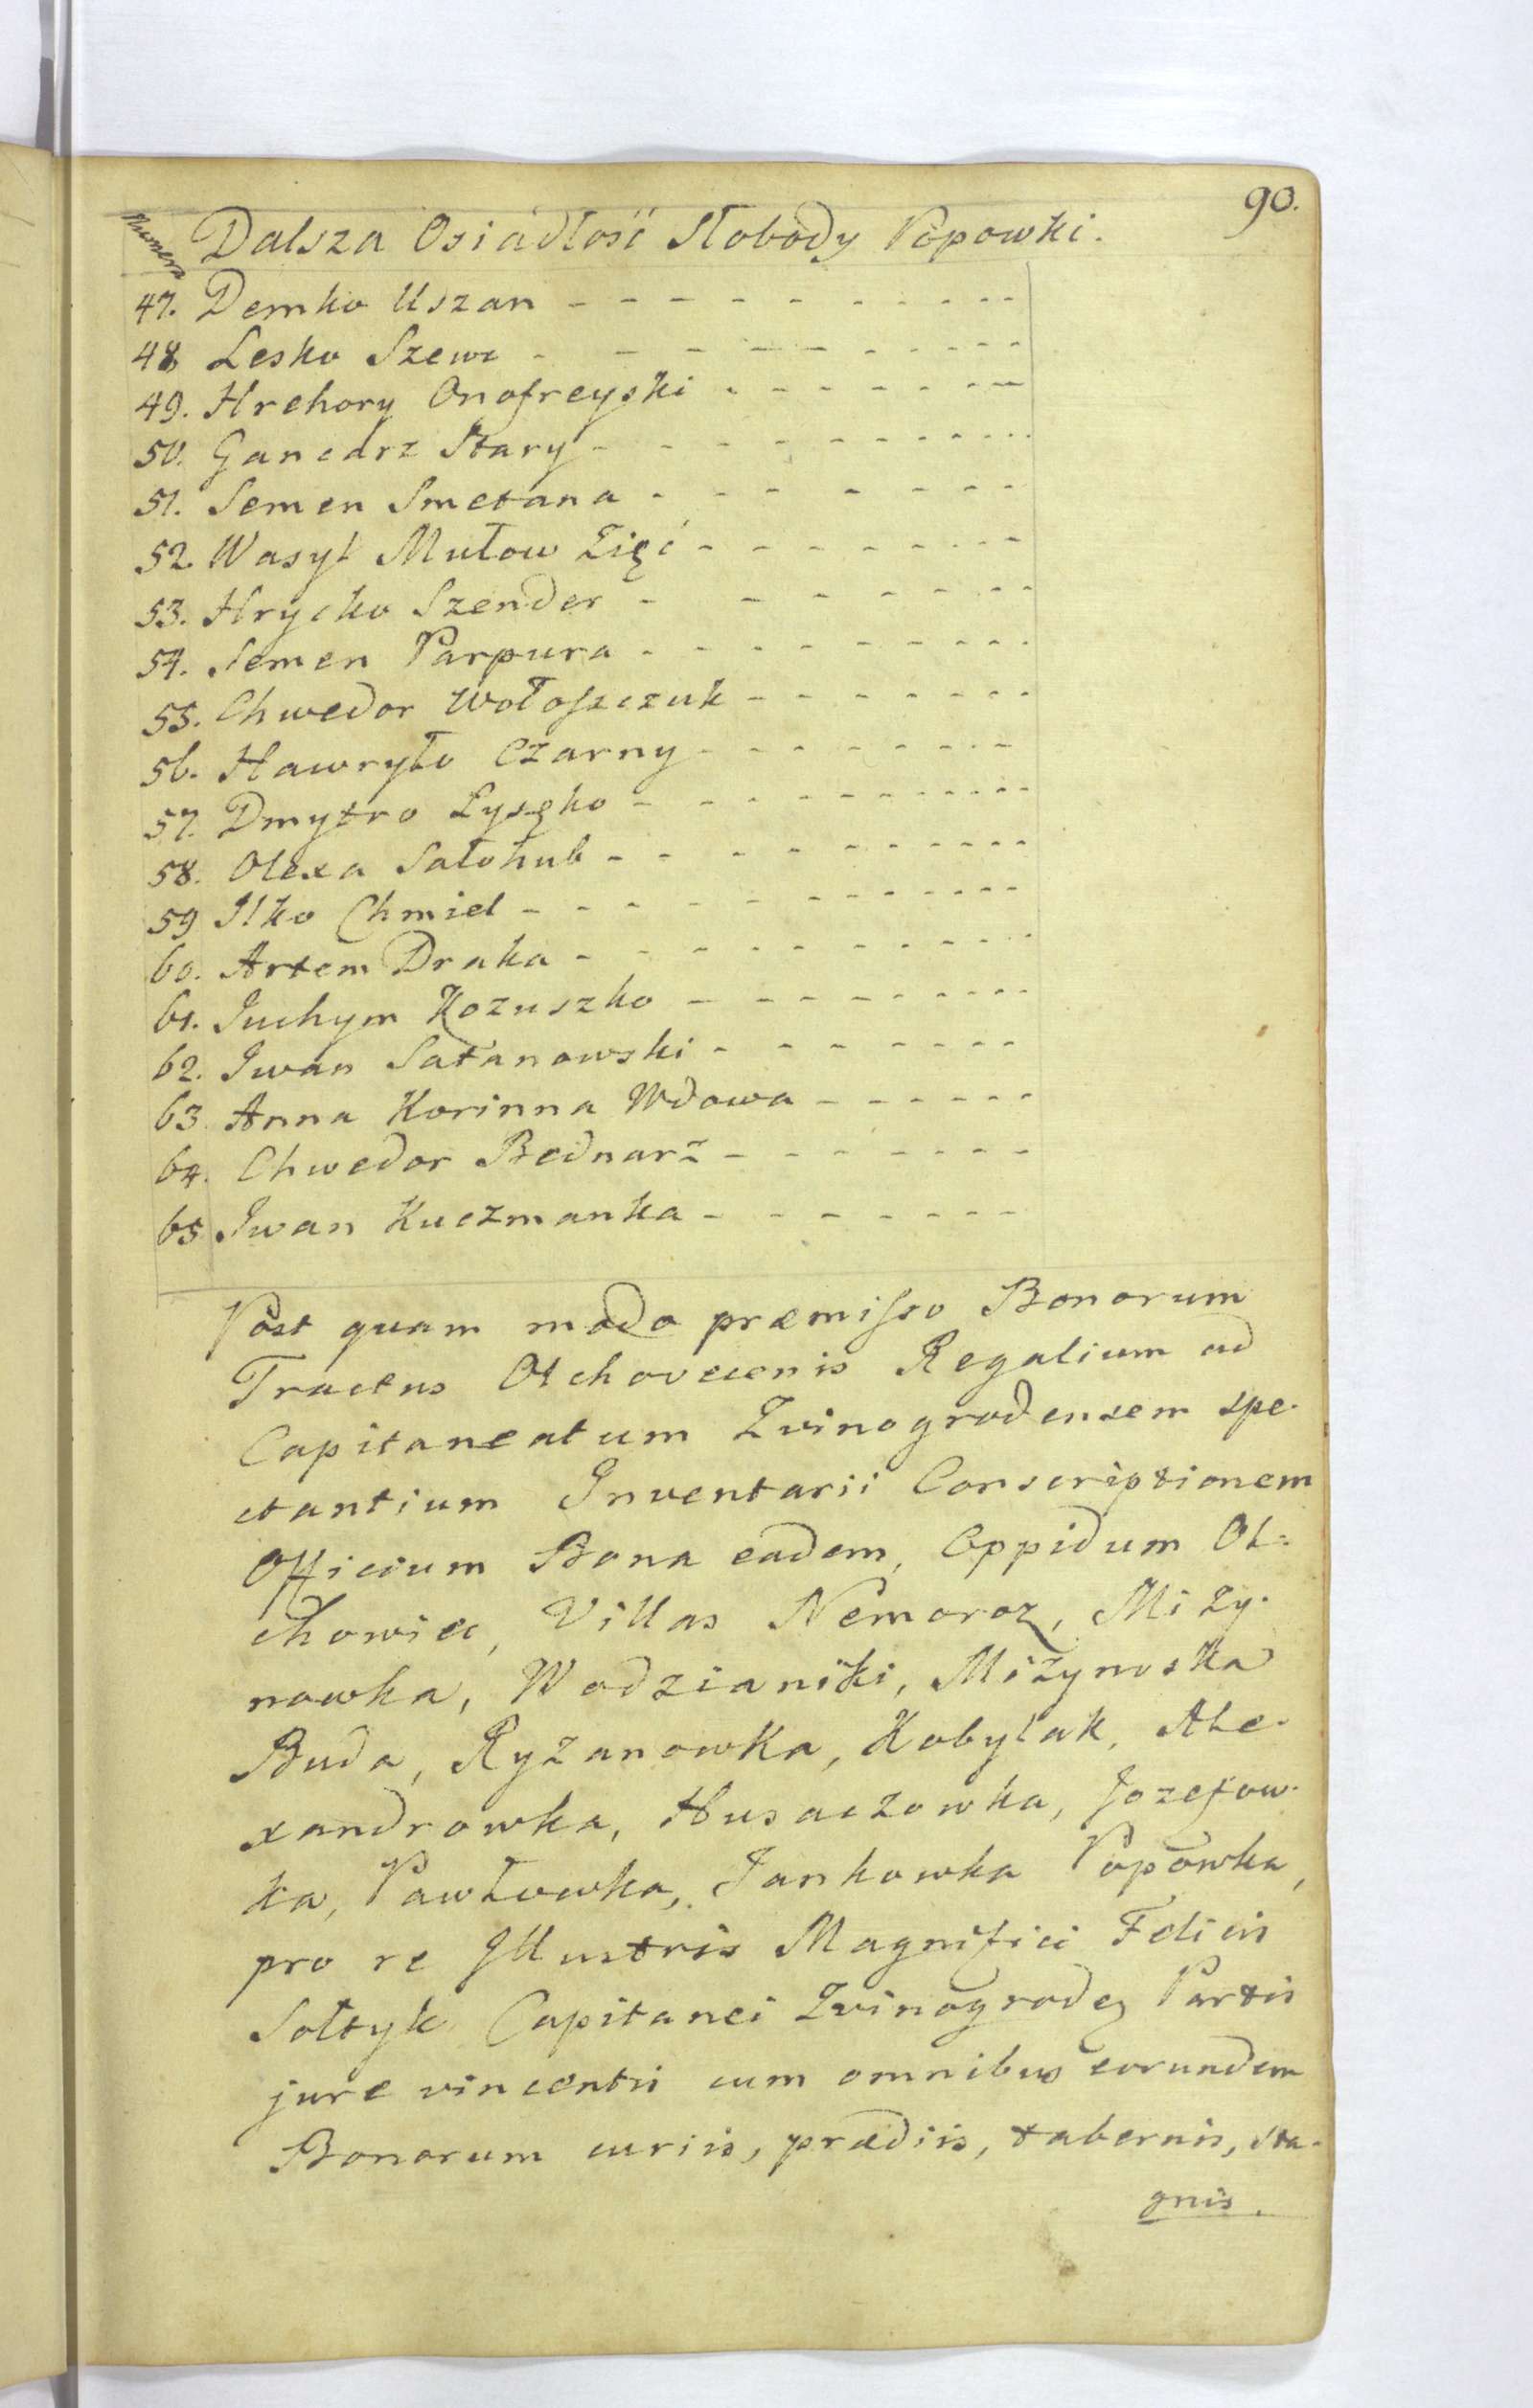 90.
Numera Dalsza Osiadłość Słobody Popowki.
47. Demko Uszan
48 Lesko Szewc
49. Hrehory Onofreyski
50. Gancarz Stary
51. Semen Smetana
52. Wasyl Mułow Zięć
53. Hrycko Szender
54. Semen Parpura
55. Chwedor Wołoszczuk
56. Hawryło Czarny
57. Dmytro Łyszko
58. Olexa Sałohub
59 Ilko Chmiel
60. Artem Draka
61. Juchym Kozuszko
62. Iwan Satanowski
63. Anna Korinna Wdowa
64. Chwedor Bednarz
65 Iwan Kuczmanka
Post quam modo præmisso Bonorum
Tractus Olchovecensis Regalium ad
Capitaneatum Zvinogrodensem spe-
ctantium Inventarii Conscriptionem
Officium Bona eadem, Oppidum Ol=
chowiec, Villas Nemoroz, Miży-
nowka, Wodzianiki, Miżynoska
Buda, Ryżanowka, Kobylak, Ale-
xandrowka, Husaczowka, Jozefow-
ka, Pawłowka, Jankowka Popowka,
pro re Illustris Magnifici Felicis
Sołtyk Capitanei Zvinogrodz Partis
jure vincentis cum omnibus eorundem
Bonorum curiis, prædiis, tabernis, sta-
gnis.